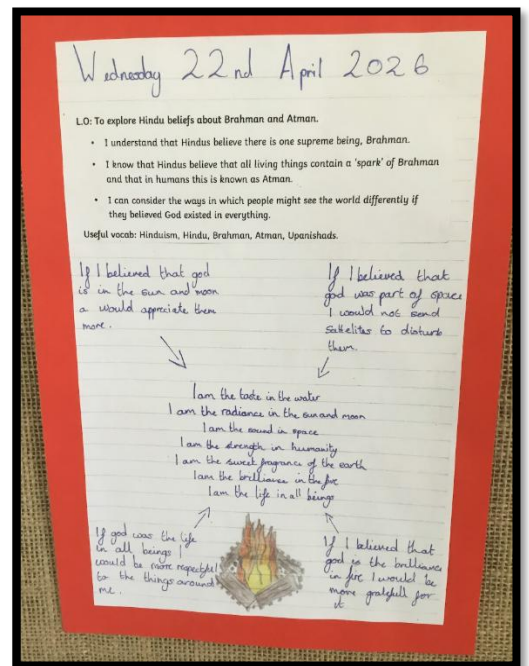 Wednesday 22nd April 2026
L.O: To explore Hindu beliefs about Brahman and Atman.
• I understand that Hindus believe there is one supreme being, Brahman.
• I know that Hindus believe that all living things contain a 'spark' of Brahman
and that in humans this is known as Atman.
• I can consider the ways in which people might see the world differently if
they believed God existed in everything.
Useful vocab: Hinduism, Hindu, Brahman, Atman, Upanishads.
If I believed that god
is in the sun and moon
a would appreciate them
more.
If I believed that
god was part of space
I would not send
sattelites to disturb
them.
I am the taste in the water
I am the radiance in the sun and moon
I am the sound in space
I am the strength in humanity
I am the sweet fragrance of the earth
I am the brilliance in the fire
I am the life in all beings
If god was the life
in all beings I
would be more respectful
to the things around
me.
If I believed that
god is the brilliance
in fire I would be
more gratefull for
it